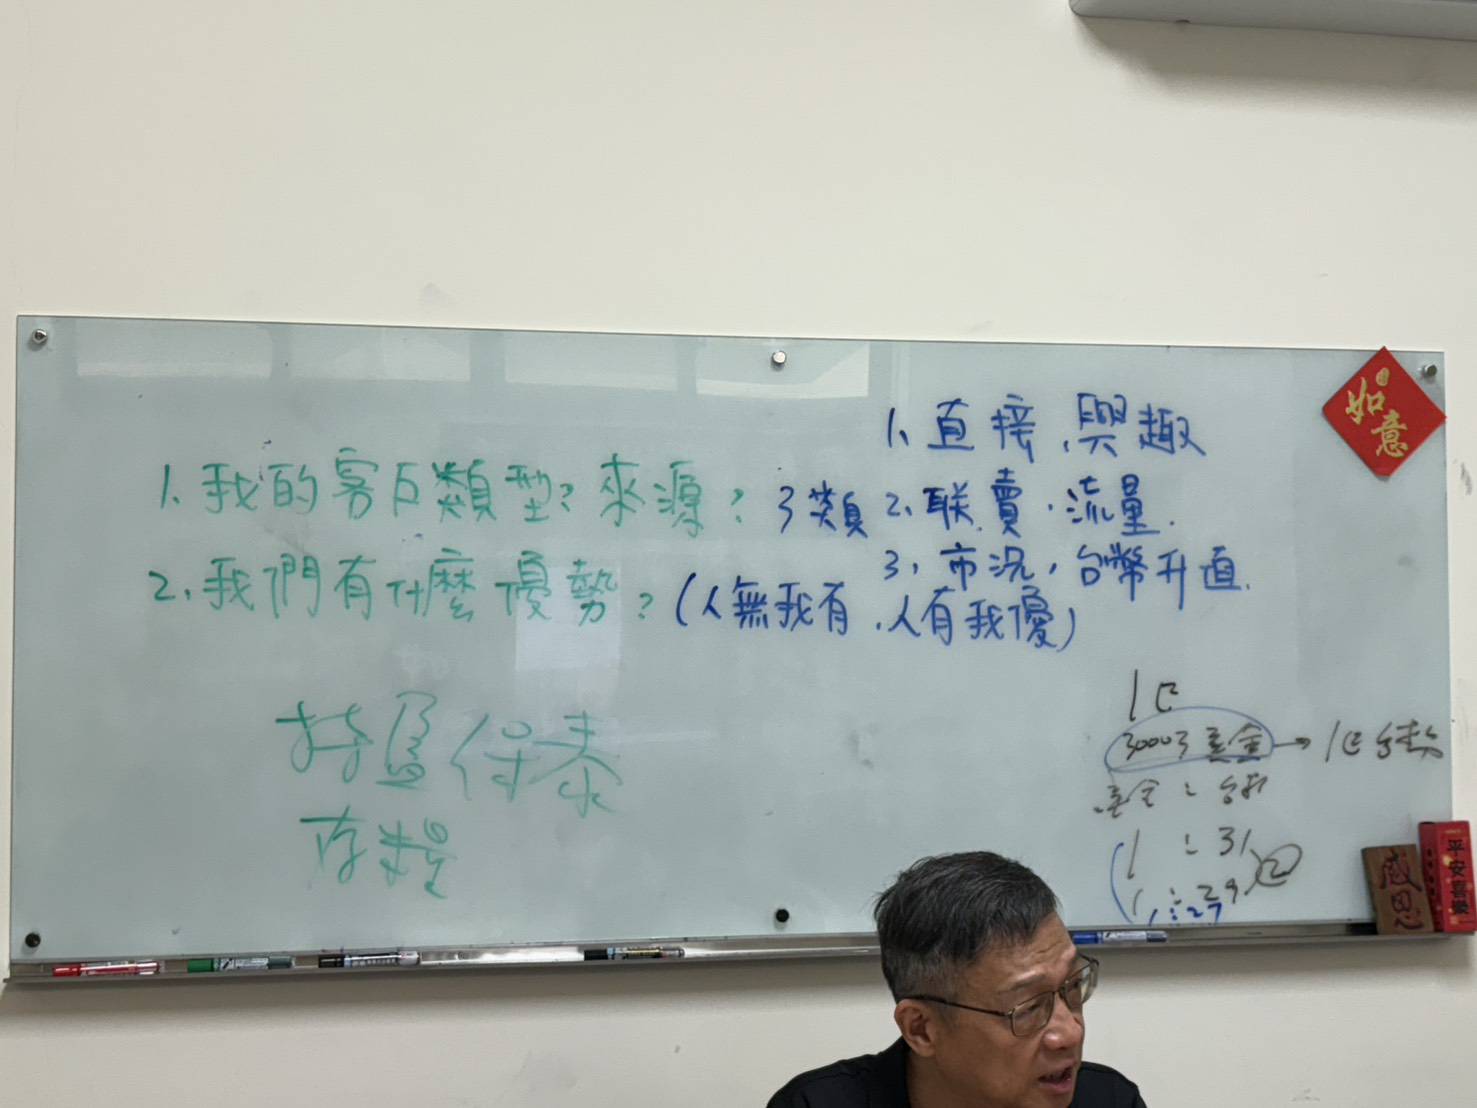 1. 我的客戶類型？來源？ 3類
2. 我們有什麼優勢？(人無我有、人有我優)
1、直接、興趣
2、联賣、流量.
3、市況，台幣升值.
持盈保泰
存糧
1E
美金 → 1E台幣
美金：台幣
1：31
1：29
1：27
2
如意
感恩
平安喜樂